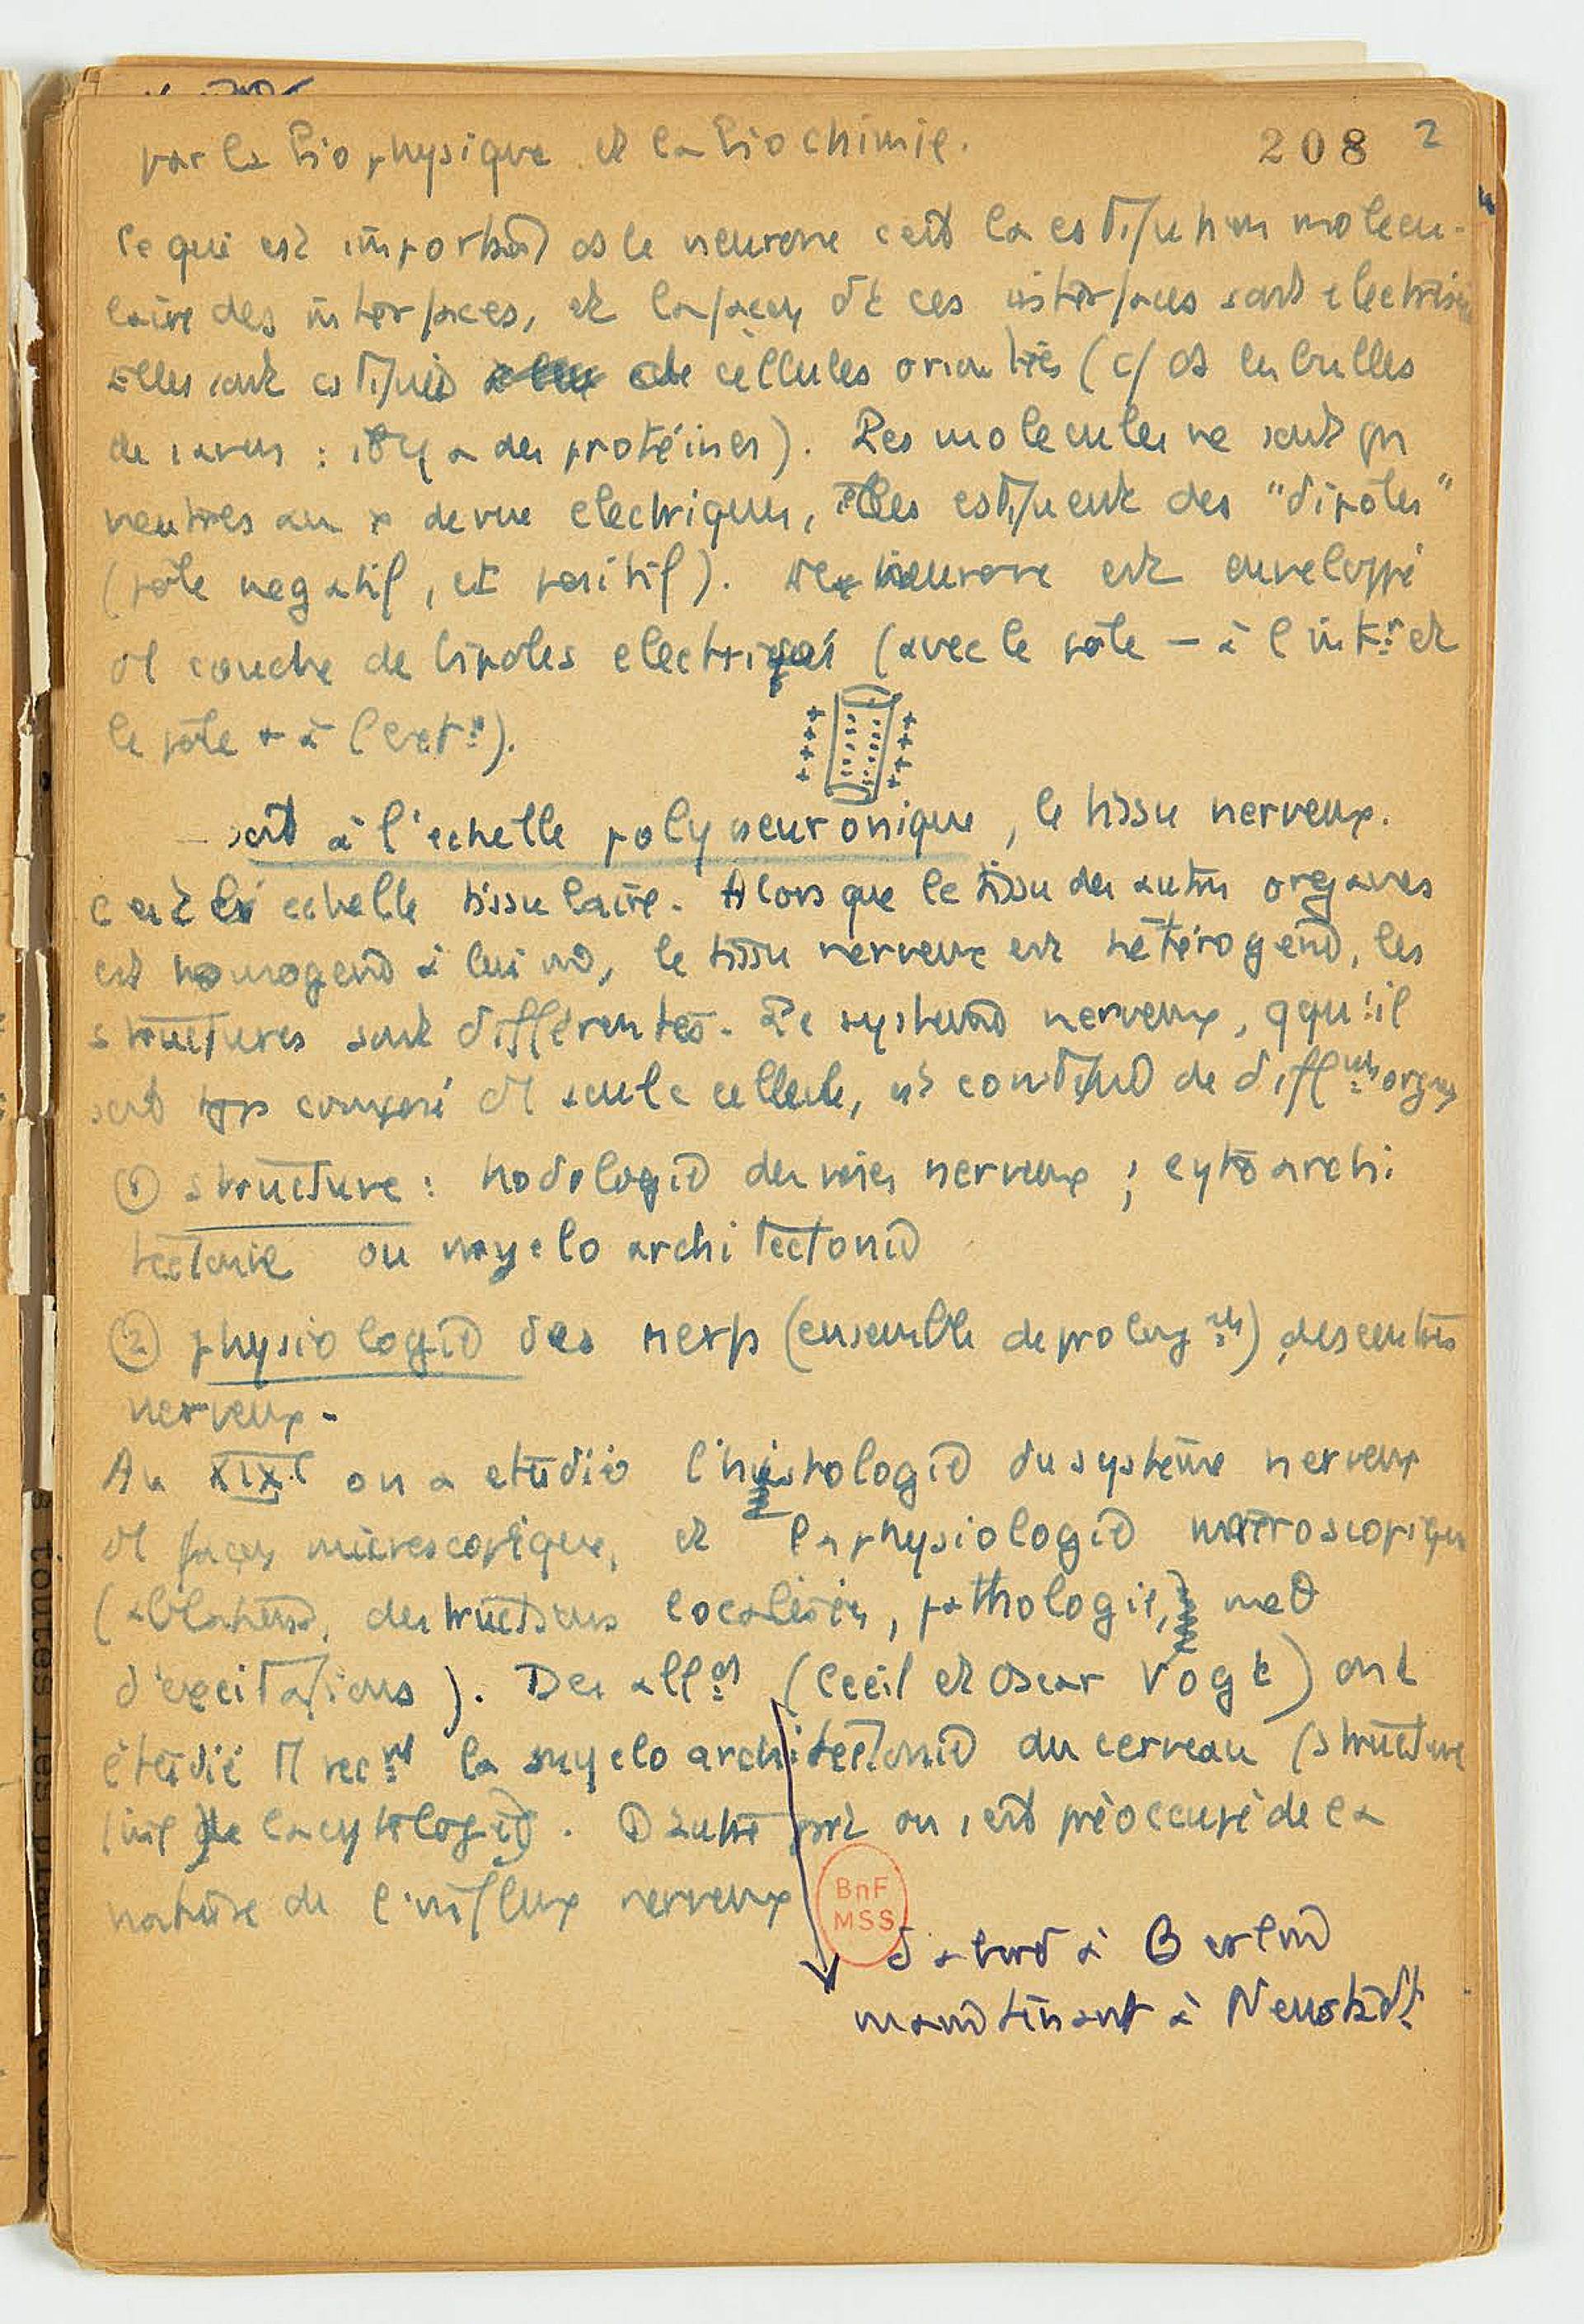 208 2
par la biophysique et la biochimie.
ce qui est important ds le neurone c'est la molecu-
laire des interfaces, et la façon dt ces interfaces sont
Elles sont de cellules orientées (c/ ds les bulles
de savon : il y a des protéines). Les molecules ne sont pas
neutres au x de vue electrique, elles des "dipôles"
(pôle negatif, et positif). neurone est enveloppé
couche de dipoles electriques (avec le pôle − à l'intr et
le pôle + à l'extr).
+ + + + + + + +
– soit à l'echelle polyneuronique, le tissu nerveux.
c'est echelle tissulaire. Alors que le tissu des autres organes
est homogene à lui le tissu nerveux est hétérogene, les
structures sont différentes. Le systeme nerveux, qqu'il
soit composé seule cellule, est de diffnts organes
① structure : hodologie des voies nerveuses ; cytoarchi
tectonie ou myelo architectonie
② physiologie des nerfs (ensemble de prolongts), des centres
nerveux.
Au XIXe on a etudié l'histologie du système nerveux
façon microscopique, et la physiologie macroscopique
(ablations, destructions localisées, pathologie,
d'excitations). Des allds (Cecil et Oscar Vogt) ont
étudié recnt la myelo architectonie du cerveau (structure
fine de la cytologie). D'autre part on s'est préoccupé de la
nature de l'influx nerveux
BnF
MSS
d'abord à Berlin
maintenant à Neustadt